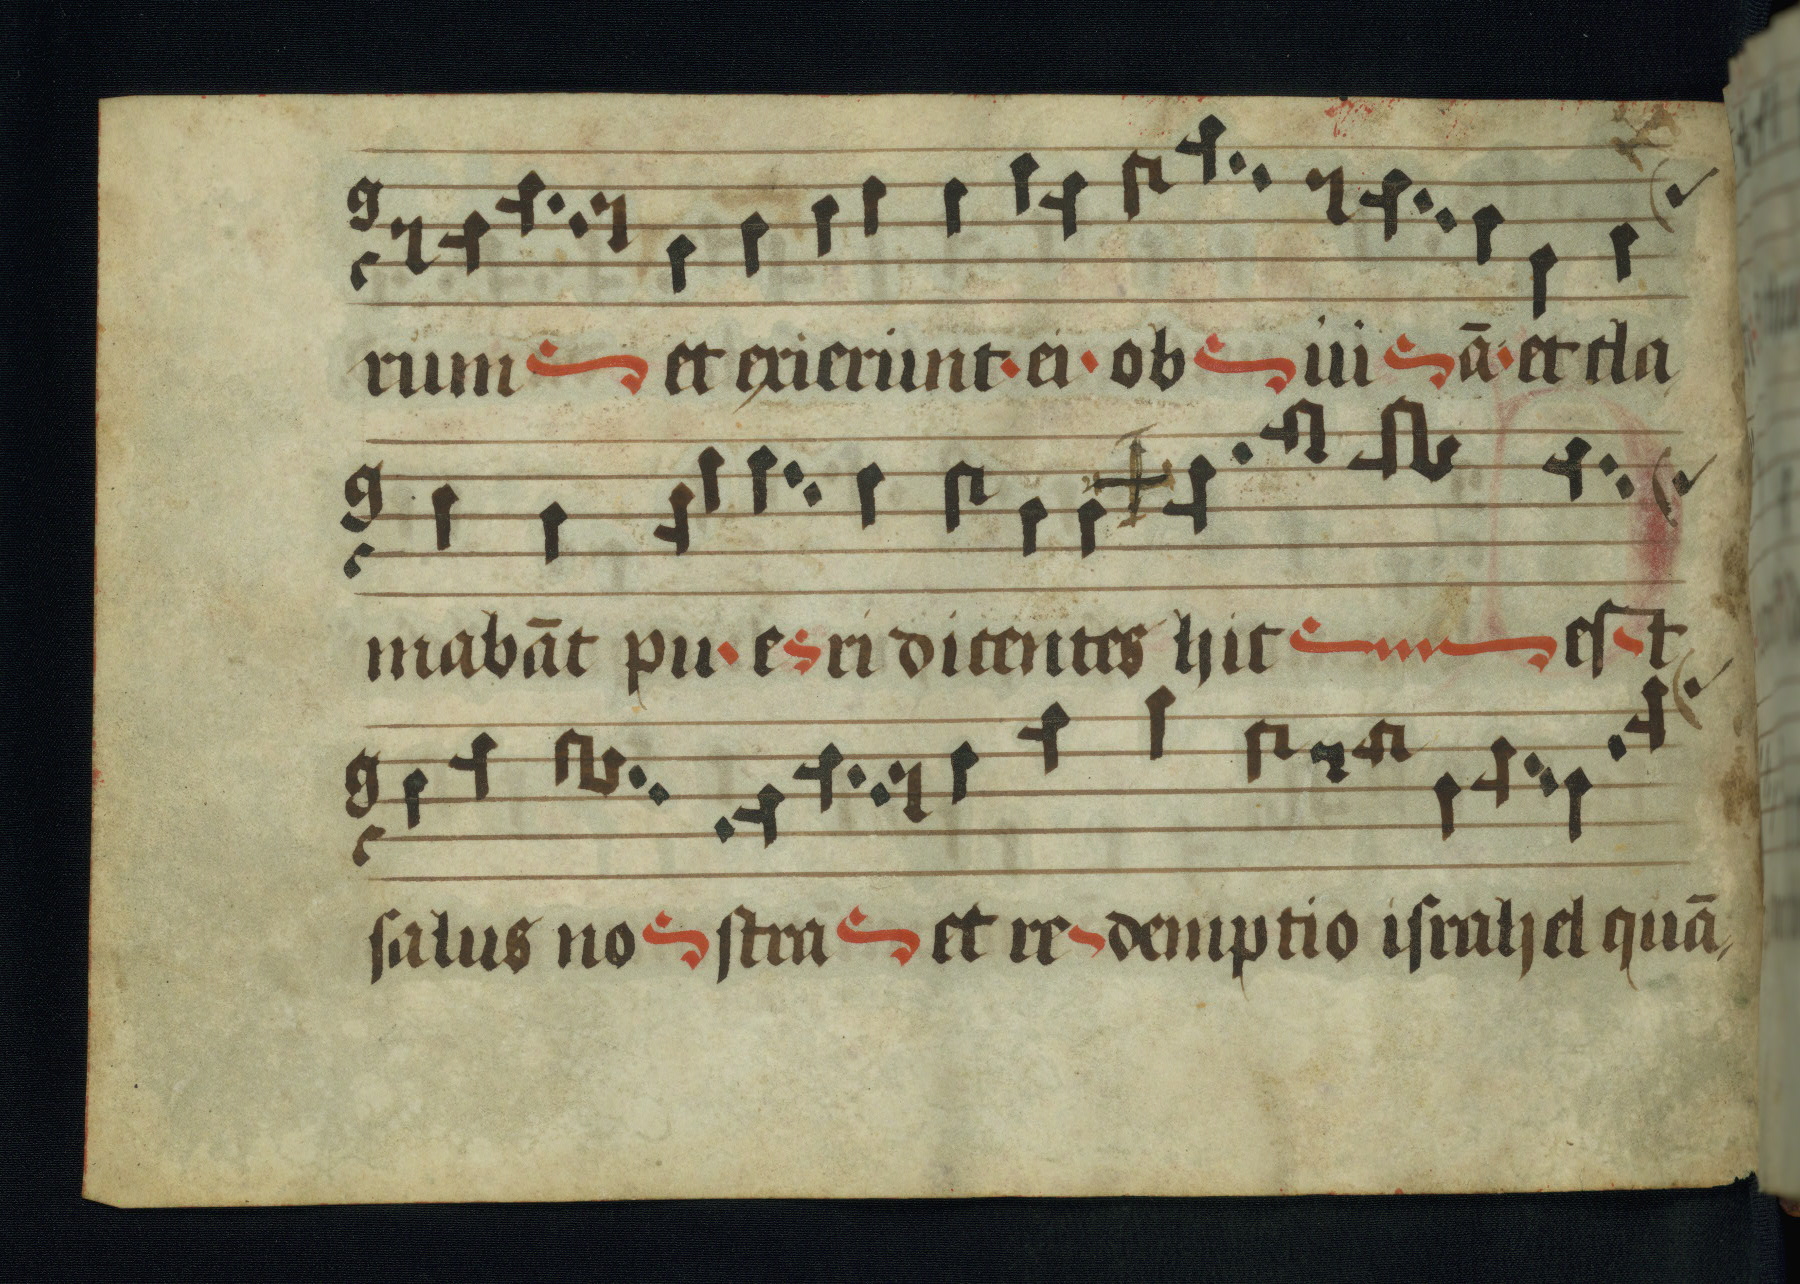 rum et exierunt ei ob uiā et cla
mabāt pu eri dicentes hic est
salus no stra et re demptio israhel quā